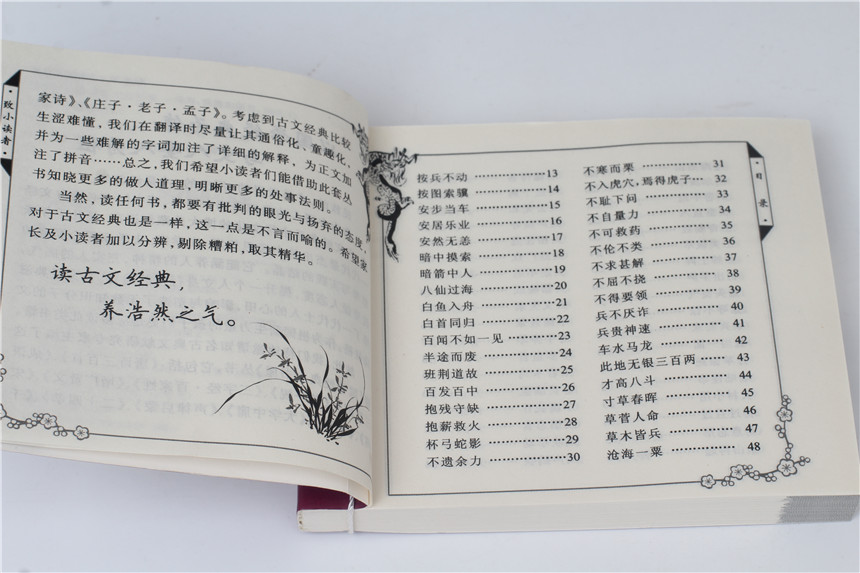 致小读者
家诗》、《庄子·老子·孟子》。考虑到古文经典比较
生涩难懂，我们在翻译时尽量让其通俗化、童趣化，
并为一些难解的字词加注了详细的解释，为正文加
注了拼音……总之，我们希望小读者们能借助此套丛
书知晓更多的做人道理，明晰更多的处事法则。
当然，读任何书，都要有批判的眼光与扬弃的态度，
对于古文经典也是一样，这一点是不言而喻的。希望家
长及小读者加以分辨，剔除糟粕，取其精华。
读古文经典，
养浩然之气。
目录
按兵不动……………13
按图索骥……………14
安步当车……………15
安居乐业……………16
安然无恙……………17
暗中摸索……………18
暗箭中人……………19
八仙过海……………20
白鱼入舟……………21
白首同归……………22
百闻不如一见………23
半途而废……………24
班荆道故……………25
百发百中……………26
抱残守缺……………27
抱薪救火……………28
杯弓蛇影……………29
不遗余力……………30
不寒而栗……………31
不入虎穴，焉得虎子…32
不耻下问……………33
不自量力……………34
不可救药……………35
不伦不类……………36
不求甚解……………37
不屈不挠……………38
不得要领……………39
兵不厌诈……………40
兵贵神速……………41
车水马龙……………42
此地无银三百两……43
才高八斗……………44
寸草春晖……………45
草菅人命……………46
草木皆兵……………47
沧海一粟……………48